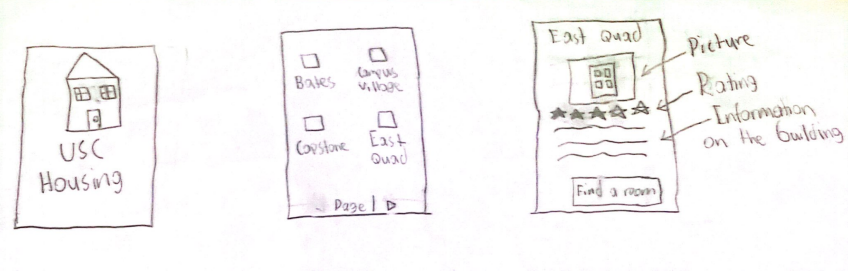 USC
Housing
Bates
Campus
Village
Capstone
East
Quad
Page 1
East Quad
Find a room
Picture
Rating
Information
on the building